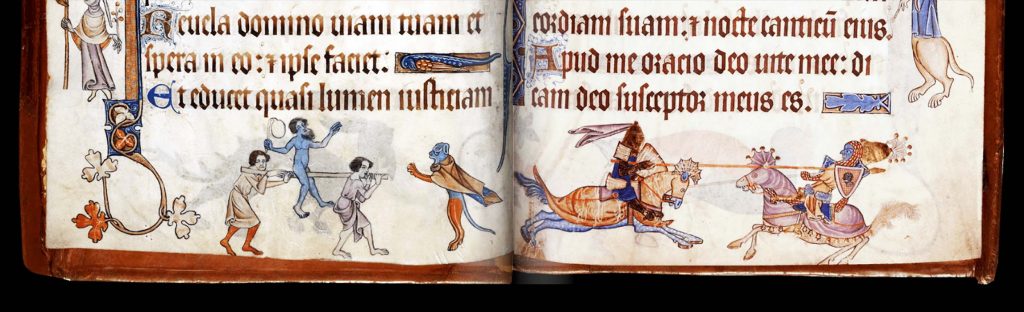 Reuela domino uiam tuam et
spera in eo: ⁊ ipse faciet.
Et educet quasi lumen iusticiam
cordiam suam: ⁊ nocte canticū eius.
Apud me oracio deo uite mee: di
cam deo susceptor meus es.